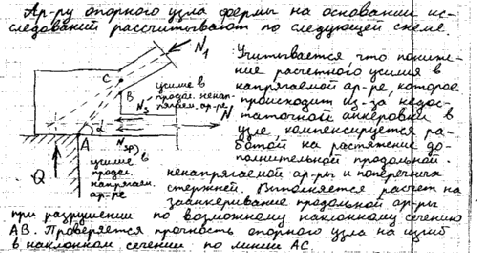 Ар-ру опорного узла фермы на основании ис-
следований рассчитывают по следующей схеме.
N1
Учитывается что пониже-
ние расчетного усилия в
напрягаемой ар-ре, которое
происходит из-за недос-
таточной анкеровки в
узле, компенсируется ра-
ботой на растяжение до-
полнительной продольной
ненапрягаемой ар-ры и поперечных
стержней. Выполняется расчет на
заанкеривание продольной ар-ры
при разрушении по возможному наклонному сечению
АВ. Проверяется прочность опорного узла на изгиб
в наклонном сечении по линии АС.
C
B
усилие в
продол. ненап-
рягаем. ар-ре
N
α
A
Nsp
усилие в
продол.
напрягаем.
ар-ре
Q